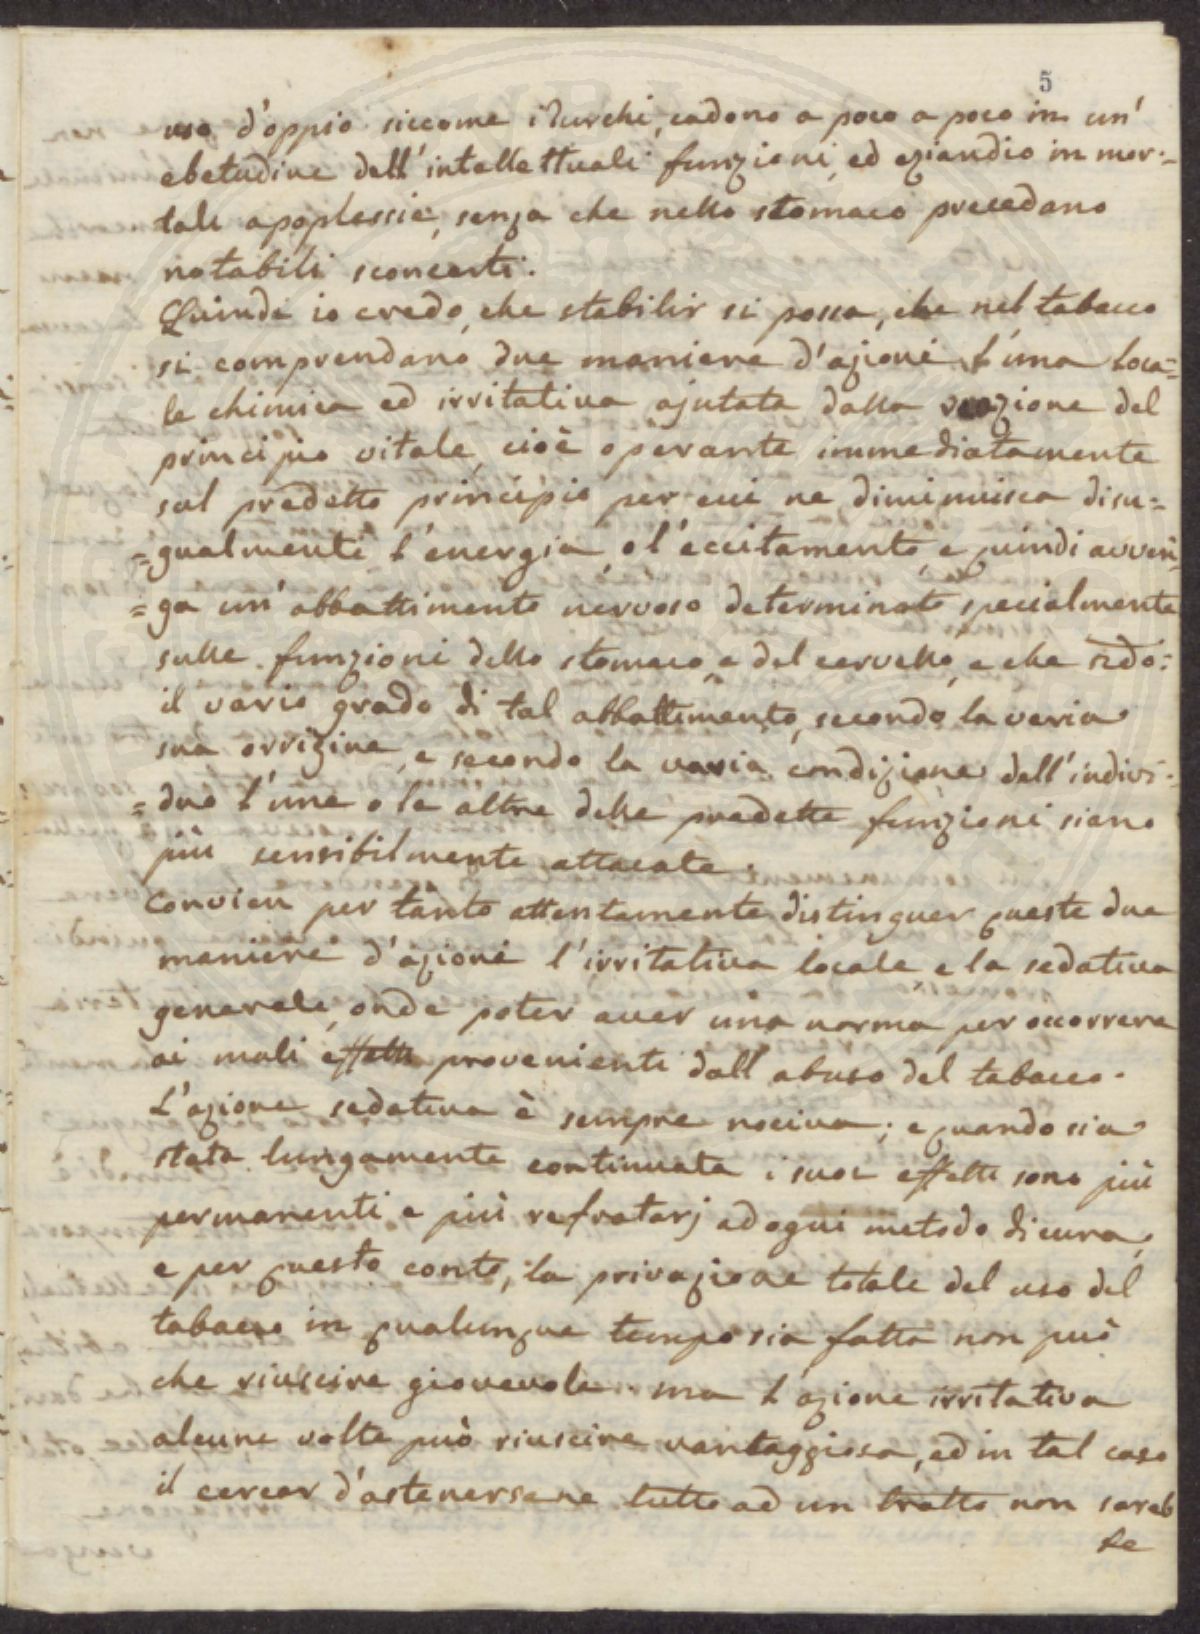 5
uso d'oppio siccome i Turchi, cadono a poco a poco in un'
ebetudine dell'intellettuali funzioni, ed eziandio in mor-
tali apoplessie, senza che nello stomaco precedano
notabili sconcerti.
Quindi io credo, che stabilir si possa, che nel tabacco
si comprendano due maniere d'azioni l'una loca=
le chimica ed irritativa ajutata dalla reazione del
principio vitale, cioè operante immediatamente
sul predetto principio per cui ne diminuisca disu=
=gualmente l'energia, o l'eccitamento, e quindi avven
=ga un'abbattimento nervoso determinato specialmente
sulle funzioni dello stomaco, e del cervello, e che
il vario grado di tal abbattimento, secondo la varia
sua orrigine, e secondo la varia condizione dell'indivi-
=duo l'une o le altre delle predette funzioni siano
più sensibilmente attacate.
Convien per tanto attentamente distinguer queste due
maniere d'azioni l'irritativa locale e la sedativa
generale, onde poter aver una norma per occorrere
ai mali effetti provenienti dall abuso del tabacco.
L'azione sedativa è sempre nociva; e quando sia
stata lungamente continuata i suoi effetti sono più
permanenti e più refratarj ad ogni metodo di cura,
e per questo conto, la privazione totale del uso del
tabacco in qualunque tempo sia fatta non può
che riuscire giovevole. ma l azione irritativa
alcune volte può riuscire vantaggiosa, ed in tal caso
il cercar d'astenersene tutto ad un tratto non sareb
be